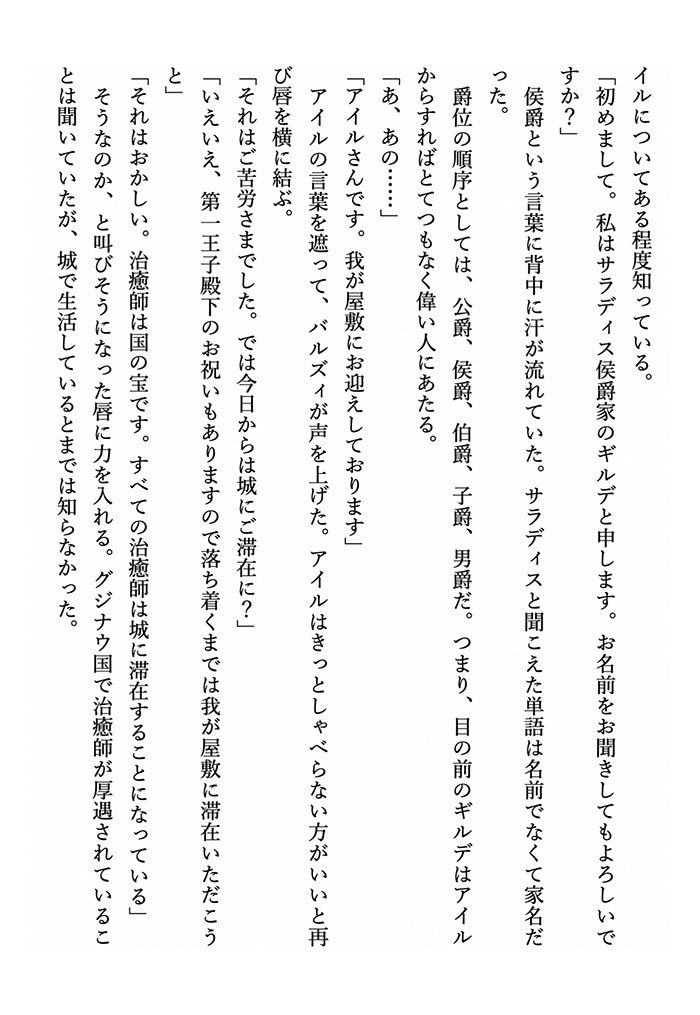 イルについてある程度知っている。
「初めまして。私はサラディス侯爵家のギルデと申します。お名前をお聞きしてもよろしいで
すか？」
　侯爵という言葉に背中に汗が流れていた。サラディスと聞こえた単語は名前でなくて家名だ
った。
　爵位の順序としては、公爵、侯爵、伯爵、子爵、男爵だ。つまり、目の前のギルデはアイル
からすればとてつもなく偉い人にあたる。
「あ、あの……」
「アイルさんです。我が屋敷にお迎えしております」
　アイルの言葉を遮って、バルズィが声を上げた。アイルはきっとしゃべらない方がいいと再
び唇を横に結ぶ。
「それはご苦労さまでした。では今日からは城にご滞在に？」
「いえいえ、第一王子殿下のお祝いもありますので落ち着くまでは我が屋敷に滞在いただこう
と」
「それはおかしい。治癒師は国の宝です。すべての治癒師は城に滞在することになっている」
　そうなのか、と叫びそうになった唇に力を入れる。グジナウ国で治癒師が厚遇されているこ
とは聞いていたが、城で生活しているとまでは知らなかった。